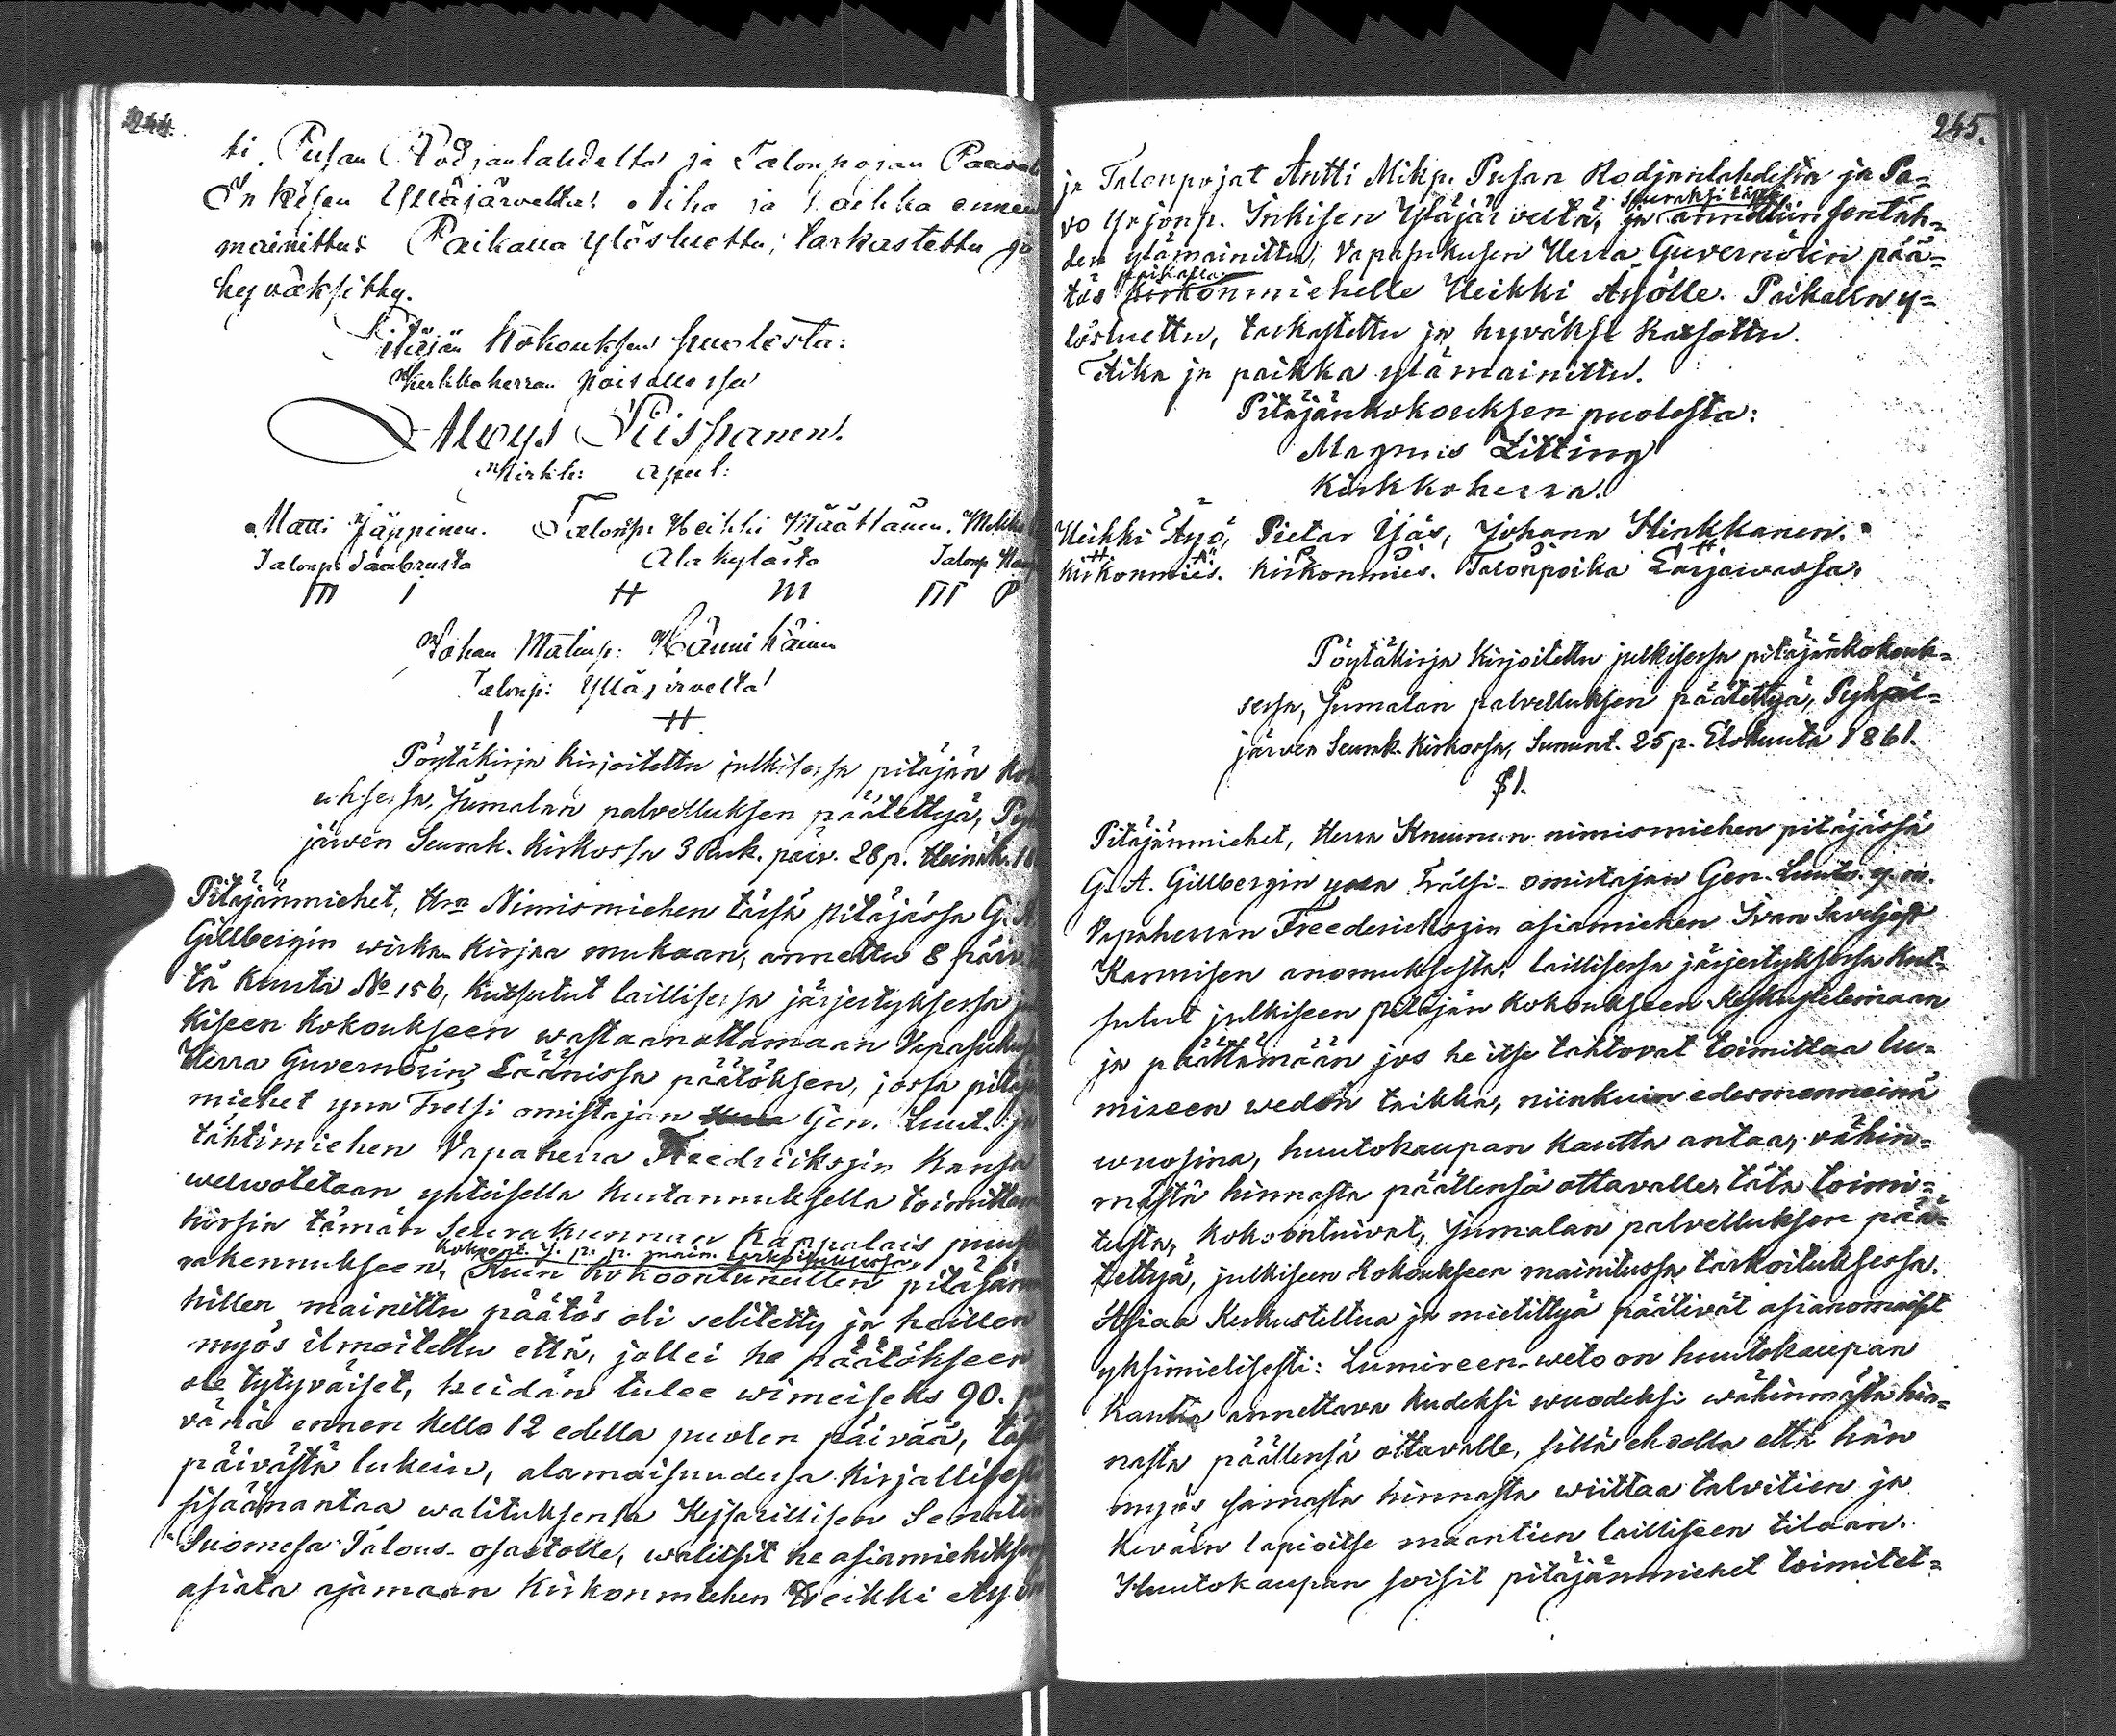 244.
ti Pusan Rodjanlahdelta ja Talonpojan Paavo
Inkisen Ylläjärveltä. Aika ja paikka ennen
mainittu. Paikalla ylösluettu, tarkastettu ja
hyväksitty.
Pitäjän Kokouksen puolesta:
Kirkkoherran poisollessa
Aloys Piispanen.
Kirkh: apul:
Matti Jäppinen. Talonp. Heikki Määttänen.
Talonp. Saabrusta Alakylästä Talonp
Johan Matinp: Hännikäinen
Talonp: Ylläjärveltä
Pöytäkirja kirjoitettu julkisessa pitäjän ko
uksessa, Jumalan palvelluksen päätettyä, Py
järven Seurak. kirkossa 3 Ruk. päiv. 28 p. Heinäk. 18
Pitäjänmiehet, Hra Nimismiehen tässä pitäjässä G. A.
Gillbergin wirka-kirjan mukaan, annettu 8 päiv.
tä kuuta No 156, kutsutut laillisessa järjestyksessä ju
kiseen kokoukseen wastaanottamaan Vapasuku
Herra Guvernörin Läänissä päätöksen, jossa pitäjä
miehet ynnä Frelsi omistajan Gen. Luut. ja
tähtimiehen Vapaherra Freedriikszin kanssa
welwotetaan yhteisellä kustannuksella toimittam
hirsiä tämän Seurakunnan Kappalais puust
kokoont. y. p. p. main. tarkoituksessa,
rakennukseen, Kuin kokoontuneillen pitäjän
hillen mainittu päätös oli selitetty ja heillen
myös ilmoitettu että, jollei he päätökseen
ole tytyväiset, heidän tulee wimeiseks 90. p
vänä ennen kello 12 edellä puolen päivää, täs
päivästä lukein, alamaisuudessa kirjallisesti
sisäänantaa walituksensa Kejsarillisen Senatin
Suomessa Talous-osastolle, walitsit he asiamiehiksen
asiata ajamaan Kirkonmiehen Heikki Äyö
245.
ja Talonpojat Antti Mikp. Pusan Rodjanlahdesta ja Pa-
vo Yrjönp. Inkisen Yläjärveltä, ja annettiin sentäh-
den ylämainittu, Vapasukusen Herra Guvernörin pää-
paikalla
tös kirkonmiehelle Heikki Äyölle. Paikalla y-
lösluettu, tarkastettu ja hyväksi katsottu.
Aika ja paikka ylämainittu.
Pitäjänkokouksen puolesta:
Magnus Litting
Kirkkoherra.
Heikki Äyö, Pietar Ijäs, Johann Hinkkanen.
Kirkonmies. Kirkonmies. Talonpoika
Pöytäkirja kirjoitettu julkisessa pitäjänkokouk-
sessa, Jumalan palvelluksen päätettyä, Pyhjäl-
järven Seurak. kirkossa, Sununt. 25 p. Elokuuta 1861.
§ 1.
Pitäjänmiehet, Herra Kruunun nimismiehen pitäjässä
G. A. Gillbergin ynnä Frälsi-omistajan Gen. Luutn. y. m.
Vapaherran Freederickszin asiamiehen Ivan Saveljeff
Karmisen anomuksesta, laillisessa järjestyksessä kut-
sutut julkiseen pitäjän kokoukseen keskustelemaan
ja päättämään jos he itse tahtovat toimittaa lu-
miseen wedon taikka, niinkuin edesmenneinä
wuosina, huutokaupan kautta antaa, vähin-
mästä hinnasta päällensä ottavalle, tätä toimi-
tusta, kokoontuivat, Jumalan palvelluksen pää-
tettyä, julkiseen kokoukseen mainitussa tarkoituksessa.
Asiaa keskusteltua ja mietittyä päätivät asianomaiset
yksimielisesti: Lumireen-weto on huutokaupan
kautta annettava kudeksi wuodeksi wähinmästä hin-
nasta päällensä ottavalle, sillä ehdolla että hän
myös samasta hinnasta wiittaa talvitien ja
keväin lapioitse maantien lailliseen tilaan.
Huutokaupan soisit pitäjänmiehet toimitet-